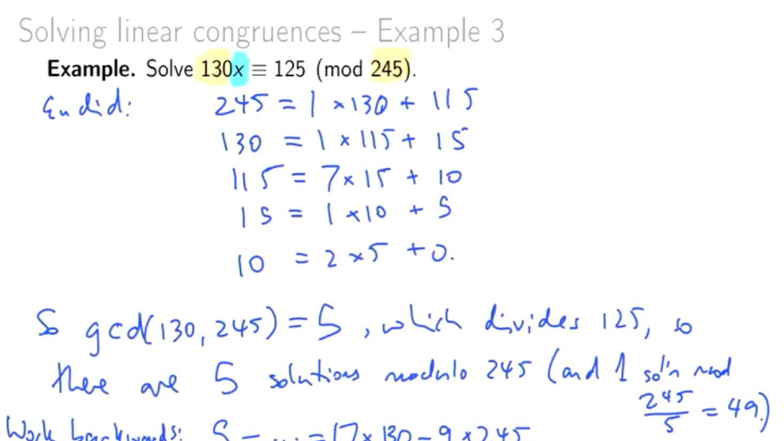 Solving linear congruences – Example 3
Example. Solve 130x ≡ 125 (mod 245).
Euclid: 245 = 1 × 130 + 115
130 = 1 × 115 + 15
115 = 7 × 15 + 10
15 = 1 × 10 + 5
10 = 2 × 5 + 0.
So gcd(130, 245) = 5, which divides 125, so
there are 5 solutions modulo 245 (and 1 sol'n mod
245/5 = 49.)
Work backwards: 5 = ... = 17 × 130 - 9 × 245